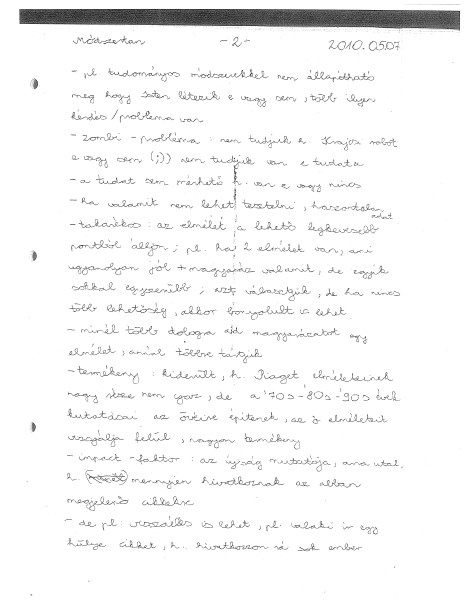 Módszertan - 2 - 2010.05.07
- pl. tudományos módszerekkel nem állapítható
meg hogy Isten létezik e vagy sem, több ilyen
kérdés/probléma van
- zombi - probléma : nem tudjuk h. Krajcsi robot
e vagy sem (;)) nem tudjuk van e tudata
- a tudat sem mérhető h. van e vagy nincs
- ha valamit nem lehet tesztelni, haszontalan
- takarékos : az elmélet a lehető legkevesebb
pontból álljon ; pl. ha 2 elmélet van, ami
ugyanolyan jól magyaráz valamit, de egyik
sokkal egyszerűbb ; azt választjuk, de ha nincs
több lehetőség, akkor bonyolult is lehet
- minél több dologra ad magyarázatot egy
elmélet, annál többre tartjuk
- termékeny : kiderült, h. Piaget elméleteinek
nagy része nem igaz, de a '70s-80s-90s évek
kutatásai az övéire építenek, az ő elméleteit
vizsgálja felül, nagyon termékeny
- impact - faktor : az újság mutatója, arra utal,
h. mennyien hivatkoznak az abban
megjelenő cikkekre
- de pl. visszaélés is lehet, pl. valaki ír egy
hülye cikket, h. hivatkozzon rá sok ember